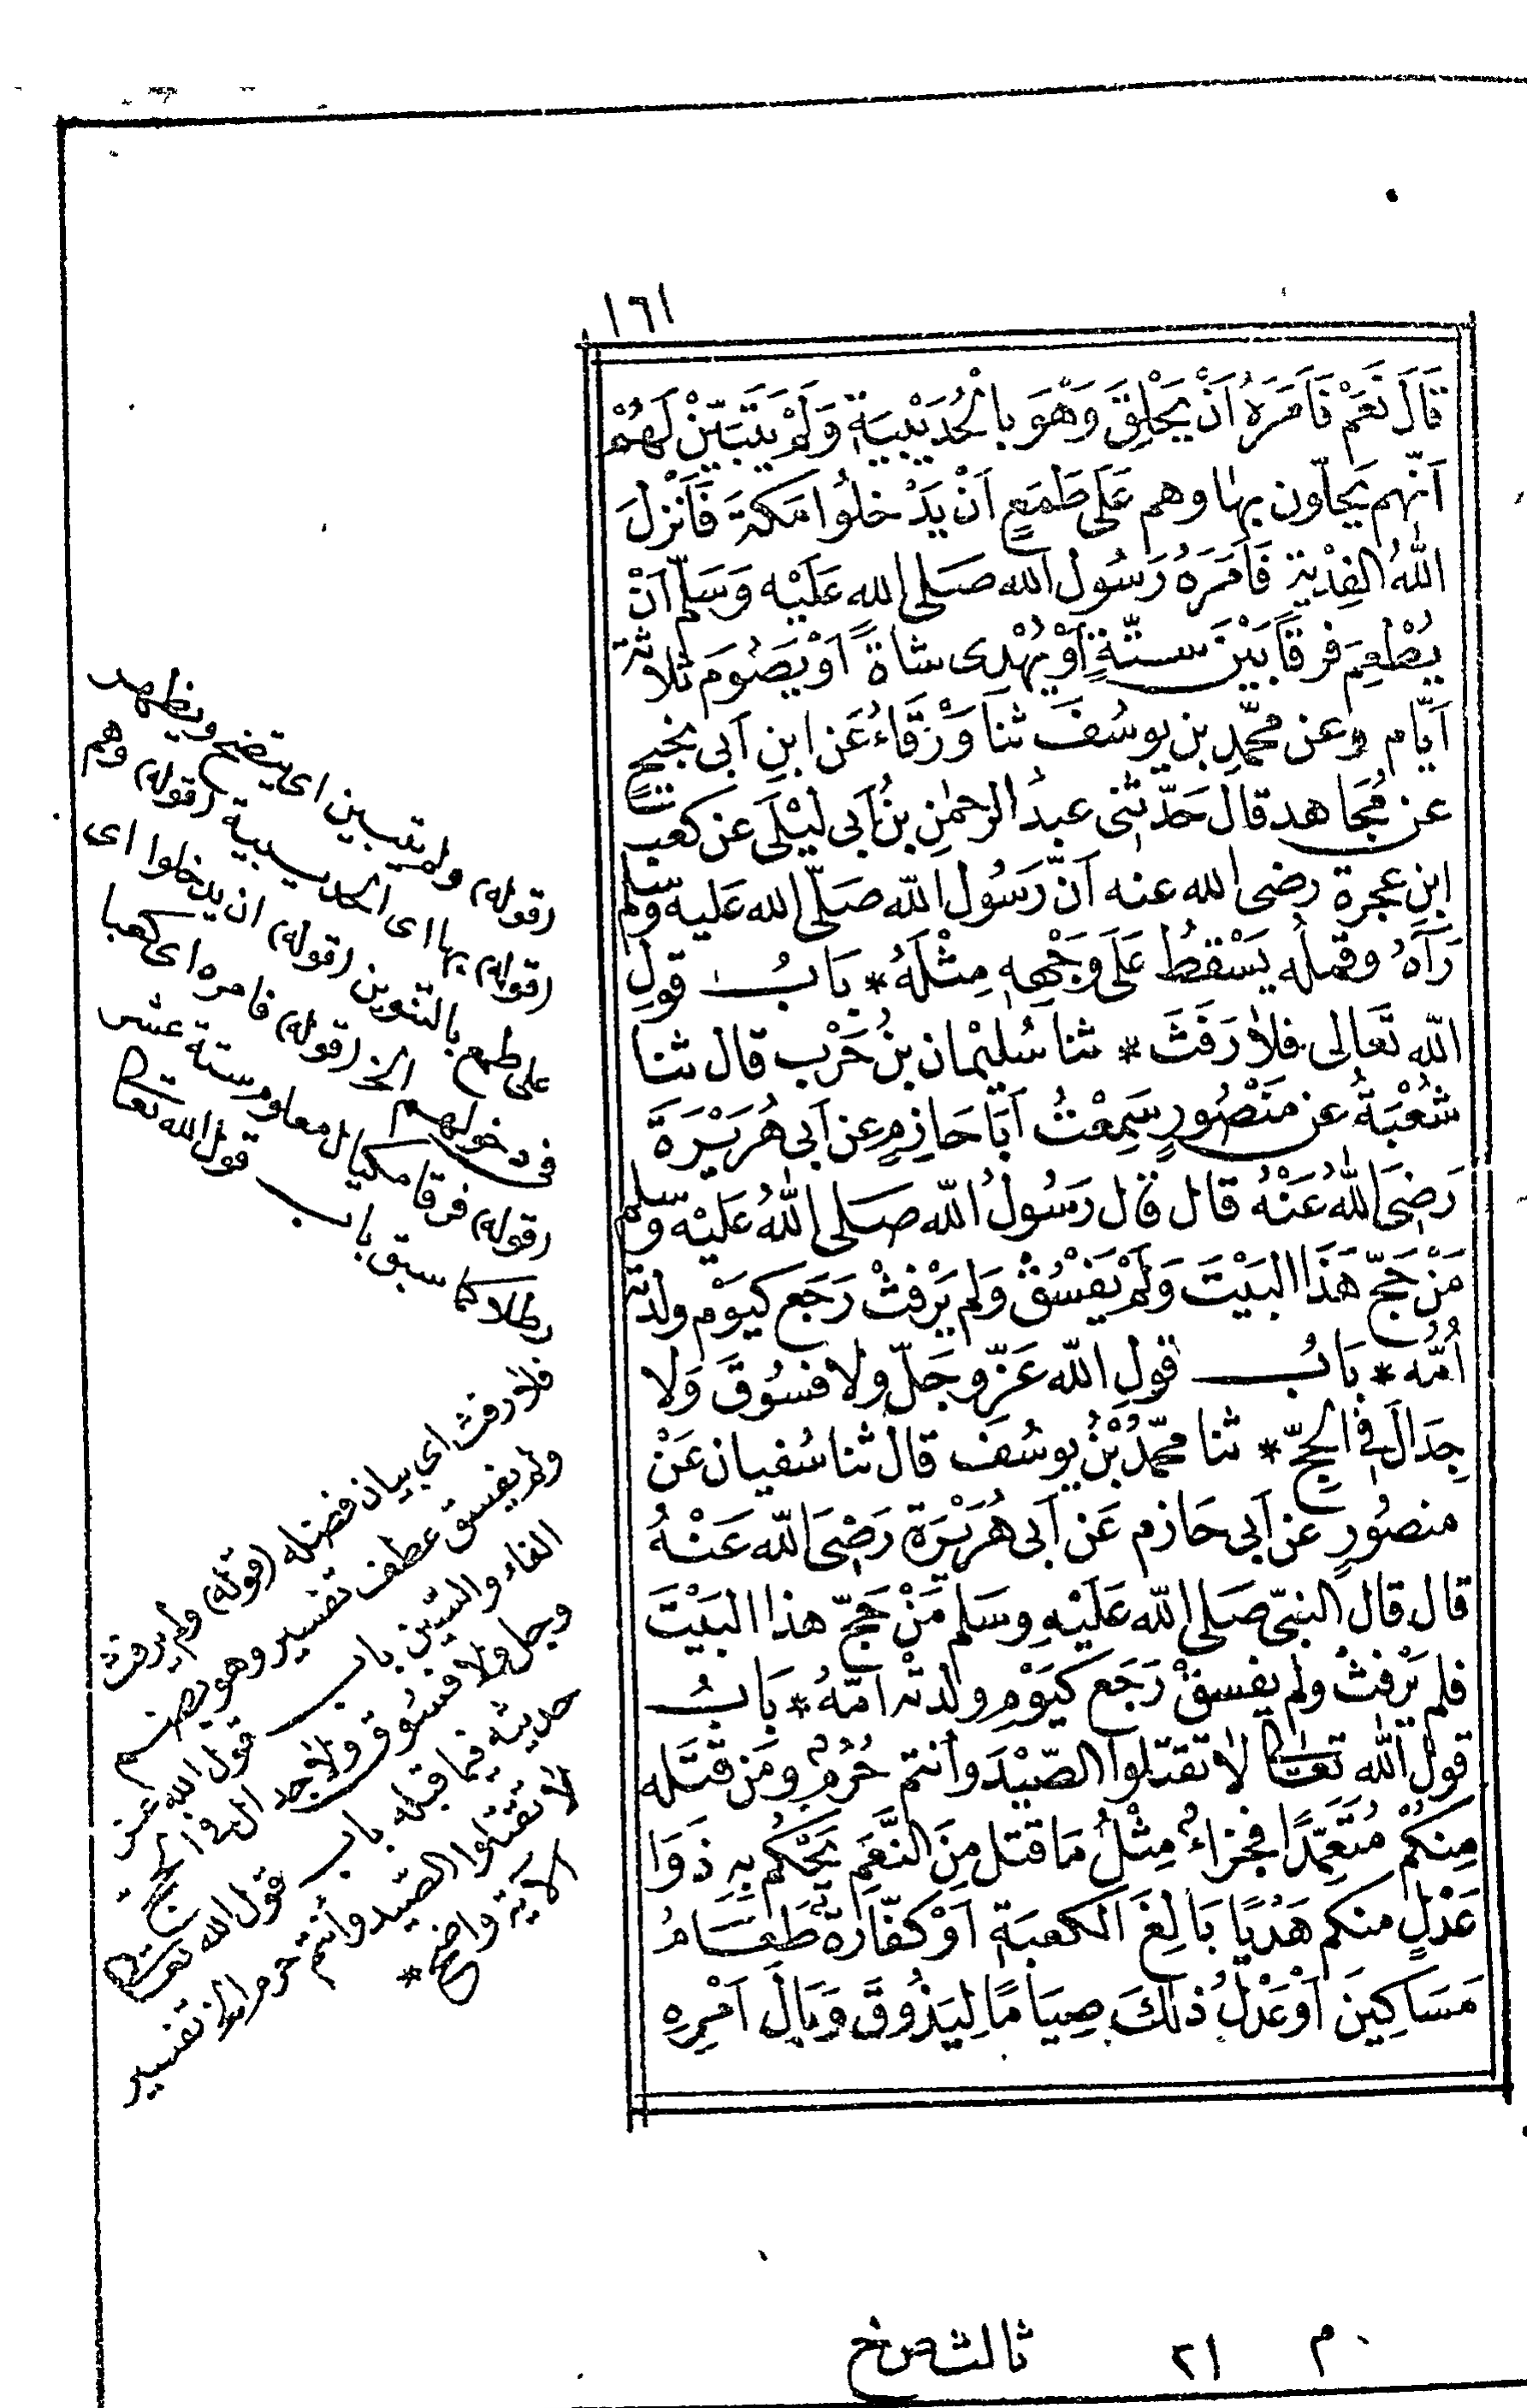 ١٦١
قَالَ نَعَمْ فَاَمَرَهُ اَنْ يَحْلِقَ وَهْوَ بِالْحُدَيْبِيَةِ وَلَمْ يَتَبَيَّنْ لَهُمْ
اَنّهم يَحِلّون بها وهم عَلَى طَمَعٍ اَنْ يَدْخلُوا مَكةَ فَاَنْزلَ
اللهُ الفِدْيَةَ فَاَمَرَهُ رَسُول الله صَلى الله عَلَيْه وَسَلّم اَنْ
يُطْعِمَ فرقًا بَيْنَ سـتّةٍ اَوْ يُهْدى شاةً اَوْ يَصُومَ ثلاثة
اَيّام وعن محمّدِ بن يوسُفَ ثنا وَرْقَاءُ عَن ابنِ اَبى نجيحٍ
عن مُجَاهد قال حَدّثنى عبدُ الرحمٰنِ بنُ اَبى ليْلَى عن كعب
ابنِ عجرة رضى الله عنه اَنّ رَسُول الله صَلّى الله عَليه وسلم
رَآهُ وقمله يَسْقطُ عَلَى وَجْهِهِ مِثْلَهُ * بَابُ قولِ
الله تَعَالى فلا رَفَثَ * ثنا سُلَيْمان بنُ حَرْب قال ثنا
شُعْبَةُ عن مَنْصُورٍ سَمِعْتُ اَبَا حَازِمٍ عن اَبى هُرَيْرَةَ
رَضِىَ اللهُ عَنْهُ قال قال رَسُولُ الله صَلى اللهُ عَلَيْه وسلم
مَنْ حَجّ هَذَا البَيْتَ وَلَمْ يَفْسُقْ وَلم يَرْفثْ رَجَع كيَوْم ولدته
اُمّه * بَابُ قولِ الله عَزّ وجَلّ ولا فسُوقَ وَلا
جِدَالَ فى الحجّ * ثنا محمّدُ بْنُ يوسُفَ قال ثنا سُفيان عَنْ
منصُورٍ عن اَبى حَازم عَن اَبى هُرَيْرَةَ رَضِىَ الله عَنْهُ
قال قال النبىّ صَلى الله عَلَيْهِ وسَلم مَنْ حَجّ هذا البَيْتَ
فلم يَرْفثْ ولم يفسقْ رَجَع كيَوْمِ ولدته اُمّهُ * بَابُ
قول الله تعالى لا تقتلوا الصّيْدَ وأنتم حُرُمٌ ومَن قتَله
مِنكُمْ مُتَعَمِّدًا فجزاءٌ مِثْلُ مَا قتل مِنَ النَّعَمِ يَحْكم بِهِ ذَوَا
عَدْلٍ منكم هَدْيًا بَالِغَ الكعبَةِ اَوْ كفّارَةٌ طَعَامُ
مَسَاكِينَ اَوْ عَدْلُ ذلكَ صِيَامًا لِيَذُوقَ وَبَالَ اَمْرِهِ
(قوله) ولم يتبين اى يتضح ويظهر
(قوله) بها اى الحديبية (قوله) وهم
على طمع بالتنوين (قوله) ان يدخلوا اى
فى دخولهم الخ (قوله) فامره اى كعبا
(قوله) فرقا مكيال معلوم ستة عشر
رطلا كما سبق باب قول الله تعالى
فلا رفث اي بيان فضله (قوله) ولم يرفث
ولم يفسق عطف تفسير وهو بضم
الفاء والسين باب قول الله عز
وجل ولا فسوق ولا جدال فى الحج
حديثه فيما قبله باب قول الله تعالى
لا تقتلوا الصيد وأنتم حرم الخ تفسير
الاية واضح *
م ٢١ ثالث خ